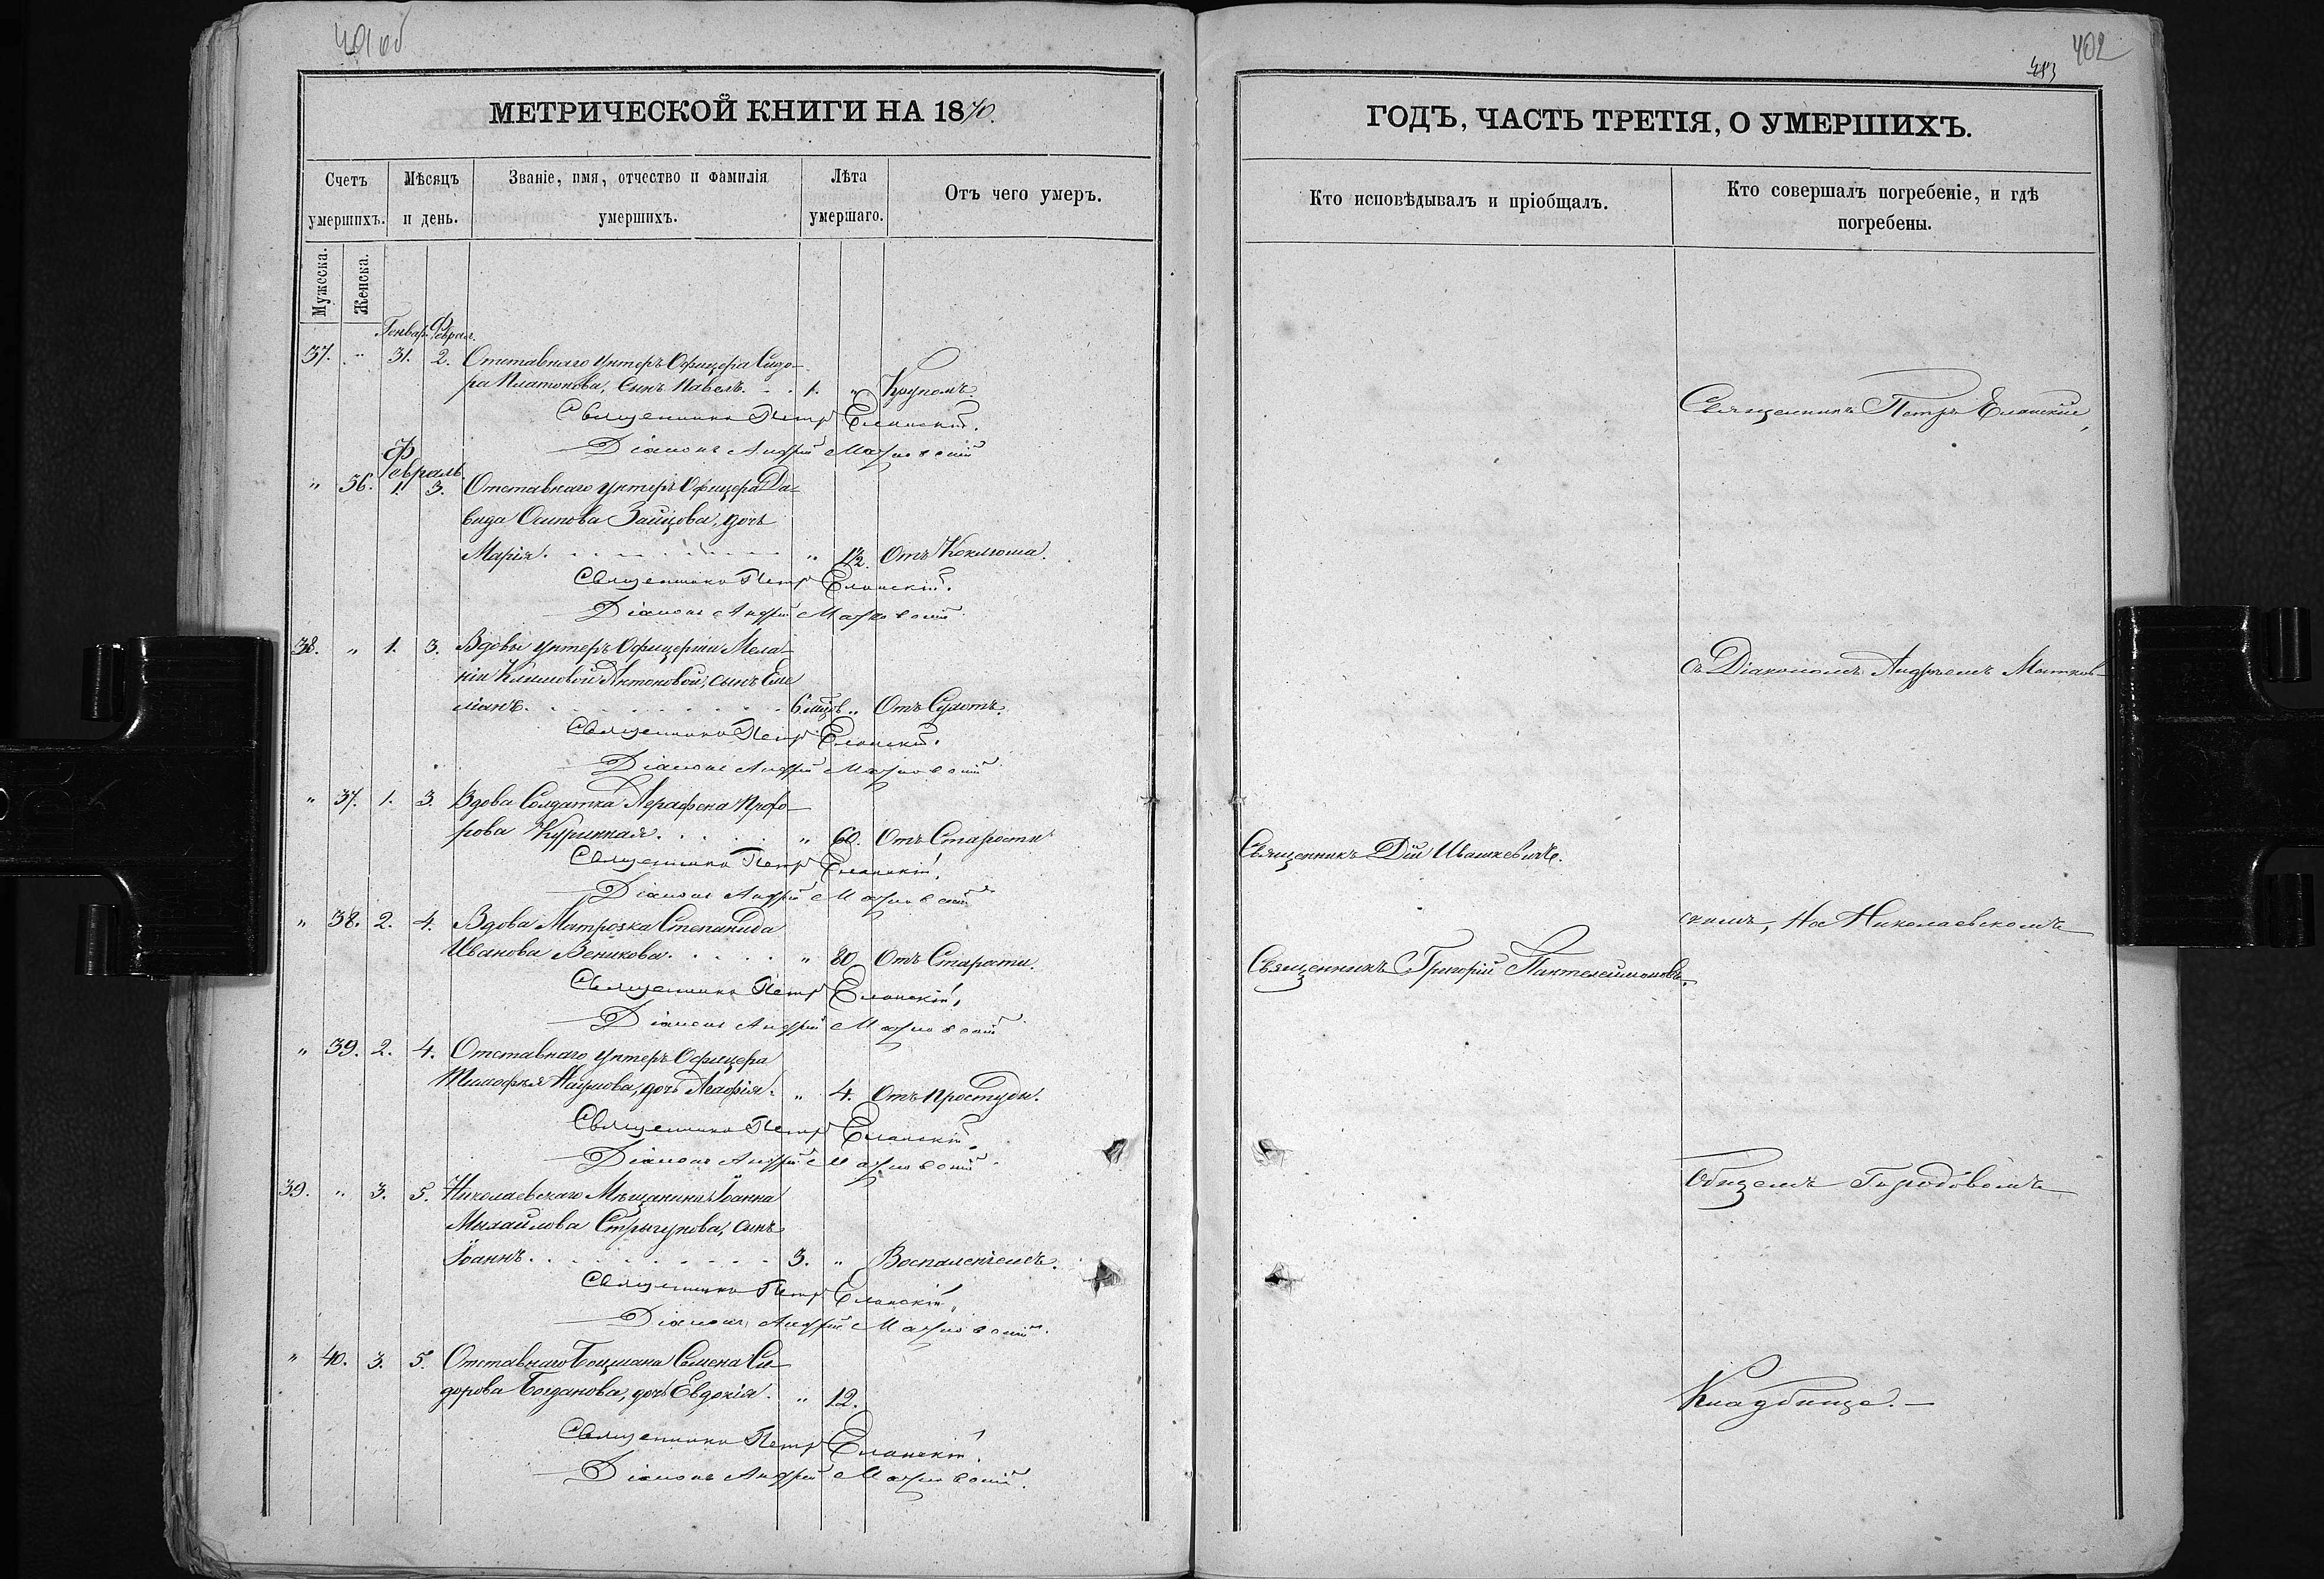 401 об
МЕТРИЧЕСКОЙ КНИГИ НА 1870.
Счетъ умершихъ.
Мѣсяцъ и день.
Званіе, имя, отчество и фамилія умершихъ.
Лѣта умершаго.
Отъ чего умеръ.
Мужеска.
Женска.
Генварь Феврал.
37. " 31. 2. Отставнаго Унтеръ Офицера Сидо-
ра Платонова, сынъ Павелъ. . . 1. " Крупомъ.
Священникъ Петръ Еланскій.
Діаконъ Андрей
Февраль.
" 36. 1. 3. Отставнаго Унтеръ Офицера Да-
вида Осипова Зайцова, дочь
Марія. . . . . . . . . " 1/2. Отъ Коклюша.
Священникъ Петръ Еланскій.
Діаконъ Андрей
38. " 1. 3. Вдовы Унтеръ Офицерши Мела-
ніи Климовой Антоновой, сынъ Еме
ліанъ. . . . . . . . . 6 мцов. " Отъ
Священникъ Петръ Еланскій.
Діаконъ Андрей
" 37. 1. 3. Вдова Солдатка Агрофена Прохо-
рова . . . . . " 60. Отъ Старости
Священникъ Петръ Еланскій.
Діаконъ Андрей
" 38. 2. 4. Вдова Матрозка Степанида
Иванова Веникова. . . . . " 80. Отъ Старости.
Священникъ Петръ Еланскій.
Діаконъ Андрей
" 39. 2. 4. Отставнаго Унтеръ Офицера
Тимофея Наумова, дочь Агафія. " 4. Отъ Простуды.
Священникъ Петръ Еланскій.
Діаконъ Андрей
39. " 3. 5. Николаевскаго Мѣщанина Іоанна
Михайлова Стрыгунова, сынъ
Іоаннъ. . . . . . . . . 3. " Воспаленіемъ.
Священникъ Петръ Еланскій.
Діаконъ Андрей
" 40. 3. 5. Отставнаго Боцмана Семена Си-
дорова Богданова, дочь Евдокія. " 12.
Священникъ Петръ Еланскій.
Діаконъ Андрей
402
ГОДЪ, ЧАСТЬ ТРЕТІЯ, О УМЕРШИХЪ.
Кто исповѣдывалъ и пріобщалъ.
Кто совершалъ погребеніе, и гдѣ погребены.
Священникъ Петръ Еланскій,
съ Діакономъ Андреемъ
Священникъ Дій Ивашкевичъ.
скимъ, На Николаевскомъ
Священникъ Григорій Пантелеимоновъ.
Общемъ Городовомъ
Кладбище.—